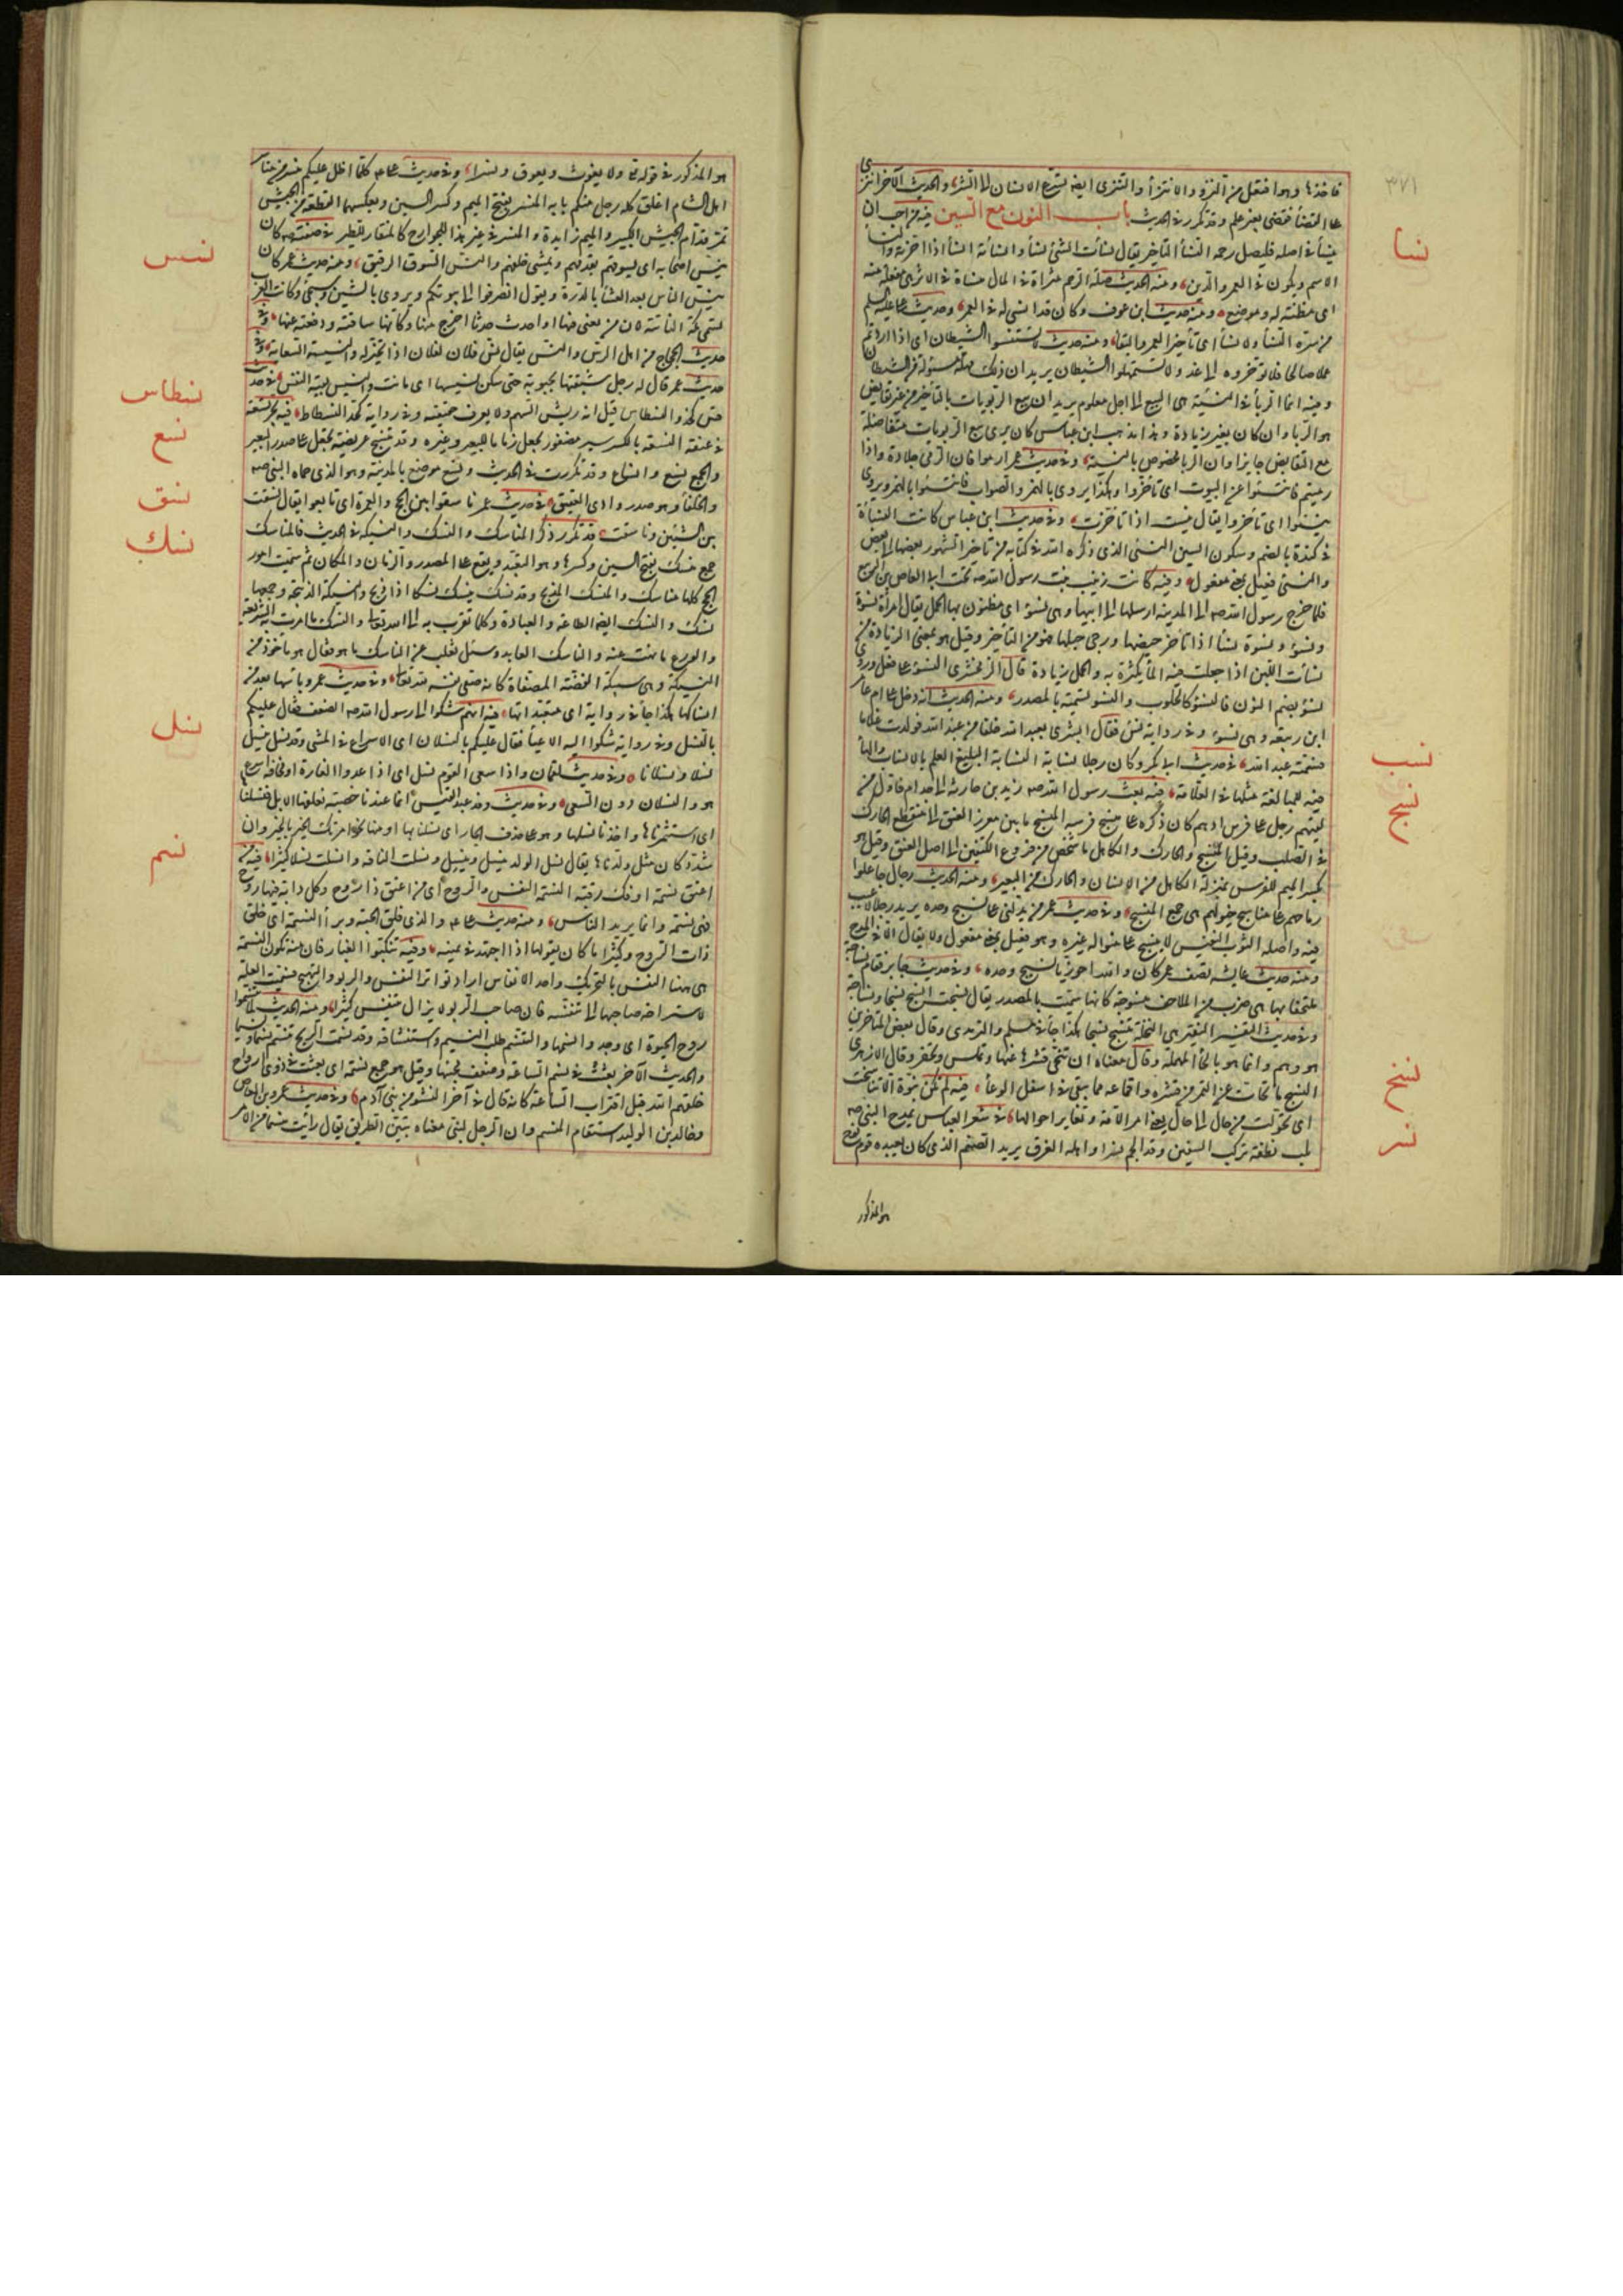 ٣٧١
على القضاء فقضى بغير علم وقد تكرر في الحديث باب النون مع السين فيه من احب ان
نسا
ينسأ في اصله فليصل رحمه النسأ التأخير يقال نسأت الشئ نسأ وانسأته انسأ اذا اخرته والنسأ
الاسم ويكون في العمر والدين ومنه الحديث صلة الرحم مثراة في المال منساة في الاثر هي مفعلة منه
اي مظنة له وموضع ومنه حديث ابن عوف وكان قد انسئ له في العمر وحديث علي
من سره النسأ ولا نسأ اي تأخير العمر والبقاء ومنه حديث لا تستنسئوا الشيطان اي اذا اردتم
عملا صالحا فلا تؤخروه الى غد ولا تستمهلوا الشيطان يريد ان ذلك مهلة مسولة من الشيطان
وفيه انما الربا في النسيئة هي البيع الى اجل معلوم يريد ان بيع الربويات بالتأخير من غير تقابض
هو الربا وان كان بغير زيادة وهذا مذهب ابن عباس كان يرى بيع الربويات متفاضلة
مع التقابض جايزا وان الربا مخصوص بالنسيئة وفي حديث عمر ارموا فان الرمي جلادة واذا
رميتم فانتسئوا عن البيوت اي تأخروا هكذا يروى بلا همز والصواب فانتسئوا بالهمز ويروى
بنسوا اي تأخروا يقال بنست اذا تأخرت وفي حديث ابن عباس كانت النسأة
في كندة بالضم وسكون السين النسئ الذي ذكره الله في كتابه من تأخير الشهور بعضها الى بعض
والنسئ فعيل بمعنى مفعول وفيه كانت زينب بنت رسول الله صه تحت ابي العاص بن الربيع
فلما خرج رسول الله صه الى المدينة ارسلها الى ابيها وهي نسوء اي مظنون بها الحمل يقال امرأة نسوة
ونسوء ونسوة نساء اذا تأخر حيضها ورجي حبلها فهو من التأخير وقيل هو بمعنى الزيادة من
نسأت اللبن اذا جعلت فيه الماء يكثره به والحمل زيادة قال الزمخشري النسوء على فعول وروي
نسوء بضم النون فالنسوء كالحلوب والنسوء تسمية بالمصدر ومنه الحديث انه دخل على ام عامر
ابن ربيعة وهي نسوء وفي رواية نسئ فقال ابشري بعبد الله خلفا من عبد الله فولدت غلاما
نسب
فسمته عبد الله في حديث ابي بكر وكان رجلا نسابة النسابة البليغ العلم بالانساب والهاء
نسج
فيه للمبالغة مثلها في العلامة فيه بعث رسول الله صه زيد بن حارثة الى جذام فاول من
لقيهم رجل على فرس ادهم كان ذكره على منسج فرسه المنسج ما بين مغرز العنق الى منقطع الحارك
في الصلب وقيل المنسج والحارك والكاهل ما شخص من فروع الكتفين الى اصل العنق وقيل هو
بكسر الميم للفرس بمنزلة الكاهل من الانسان والحارك من البعير ومنه الحديث رجال جاعلوا
رماحهم على مناسج خيولهم هي جمع المنسج وفي حديث عمر من يدلني على نسيج وحده يريد رجلا لا عيب
فيه واصله الثوب النفيس لا ينسج على منواله غيره وهو فعيل بمعنى مفعول ولا يقال الا في المدح
ومنه حديث عايشه تصف عمر كان والله احوزيا نسيج وحده وفي حديث جابر فقام في نساجة
ملتحفا بها هي ضرب من الملاحف منسوجة كانها سميت بالمصدر يقال نسجت انسج نسجا ونساجة
وفي حديث النقير هي النخلة تنسج نسجا هكذا جاء في مسلم والترمذي وقال بعض المتأخرين
هو وهم وانما هو بالحاء المهملة وقال معناه ان تنحى قشرها عنها وتملس وتحفر وقال الازهري
نسخ
النسج ما تحات عن التمر من قشره واقماعه مما يبقى في اسفل الوعاء فيه لم تكن نبوة الا تناسخت
اي تحولت من حال الى حال يعني امر الامة وتغاير احوالها في شعر العباس يمدح النبي صه
نسر
بل نطفة تركب السفين وقد الجم نسرا واهله الغرق يريد الصنم الذي كان يعبده قوم نوح
هو المذكور
هو المذكور في قوله تعالى ولا يغوث ويعوق ونسرا وفي حديث علي كلما اظل عليكم منسر من مناسر
اهل الشام اغلق كل رجل منكم بابه المنسر بفتح الميم وكسر السين وبعكسهما القطعة من الجيش
تمر قدام الجيش الكبير والميم زايدة والمنسر في غير هذا للجوارح كالمنقار للطير في صفته صه كان
نسس
ينس اصحابه اي يسوقهم يقدمهم ويمشي خلفهم والنس السوق الرقيق ومنه حديث عمر كان
ينس الناس بعد العشاء بالدرة ويقول انصرفوا الى بيوتكم ويروى بالشين وسيجئ وكانت العرب
تسمي مكة الناسة لان من بغى فيها او احدث حدثا اخرج منها وكانها ساقته ودفعته عنها وفي
حديث الحجاج من اهل الرس والنس يقال نس فلان لفلان اذا تخبر له والنسيسة السعاية وفي
حديث عمر قال له رجل شنقتها بجبوبة حتى سكن نسيسها اي ماتت والنسيس بقية النفس
نسطاس
قيل انه ريش السهم ولا يعرف حقيقته وفي رواية كحد النسطاط فيه يجر نسعة
نسع
في عنقه النسعة بالكسر سير مضفور يجعل زماما للبعير وغيره وقد تنسج عريضة تجعل على صدر البعير
والجمع نسع وانساع وقد تكررت في الحديث ونسع موضع بالمدينة وهو الذي حماه النبي صه
نسق
والخلفاء وهو صدر وادي العقيق في حديث عمر ناسقوا بين الحج والعمرة اي تابعوا يقال نسقت
نسك
بين الشيئين وناسقت قد تكرر ذكر المناسك والنسك والنسيكة في الحديث فالمناسك
جمع منسك بفتح السين وكسرها وهو المتعبد ويقع على المصدر والزمان والمكان ثم سميت امور
الحج كلها مناسك والمنسك المذبح وقد نسك ينسك نسكا اذا ذبح والنسيكة الذبيحة وجمعها
نسك والنسك ايضا الطاعة والعبادة وكلما تقرب به الى الله تعالى والنسك ما امرت به الشريعة
والورع ما نهت عنه والناسك العابد وسئل ثعلب عن الناسك ما هو فقال هو مأخوذ من
النسيكة وهي سبيكة الفضة المصفاة كانه صفى نفسه لله تعالى وفي حديث عمر وبأسها بعد من
انساكها هكذا جاء في رواية اي متعبداتها فيه انهم شكوا الى رسول الله صه الضعف فقال عليكم
نسل
بالنسل وفي رواية شكوا اليه الاعياء فقال عليكم بالنسلان اي الاسراع في المشي وقد نسل ينسل
نسلا ونسلانا وفي حديث لقمان واذا سعى القوم نسل اي اذا عدوا الغارة او مخافة اسرع
هو والنسلان دون السعي وفي حديث وفد عبد القيس انما عندنا خصبة نعلفها الابل فنسلناها
اي استثمرناها واخذنا نسلها وهو على حذف الجار اي نسلنا بها او منها نحو امرتك الخير بالخير وان
شدد كان مثل ولدناها يقال نسل الولد ينسل وينسل ونسلت الناقة وانسلت نسلا كثيرا فيه من
نسم
اعتق نسمة او فك رقبة النسمة النفس والروح اي من اعتق ذا روح وكل دابة فيها روح
فهي نسمة وانما يريد الناس ومنه حديث علي والذي فلق الحبة وبرأ النسمة اي خلق
ذات الروح وكثيرا ما كان يقولها اذا اجتهد في يمينه وفيه تنكبوا الغبار فان منه تكون النسمة
هي ههنا النفس بالتحريك واحد الانفاس اراد تواتر النفس والربو والنهيج فسميت العلة
لاستراحة صاحبها الى تنفسه فان صاحب الربو لا يزال يتنفس كثيرا ومنه الحديث
روح الحيوة اي وجد وانسيمها والتنسم طلب النسيم واستنشاقه وقد نسمت الريح تنسم نسما ونسيما
والحديث الآخر بعثت في نسم الساعة وضعف مجيئها وقيل هو جمع نسمة اي بعثت في ذوي ارواح
خلقهم الله قبل اقتراب الساعة كانه قال في آخر النشو من بني آدم وفي حديث عمرو بن العاص
وخالد بن الوليد استقام المنسم وان الرجل لنبي معناه تبين الطريق يقال رأيت منسما من الامر